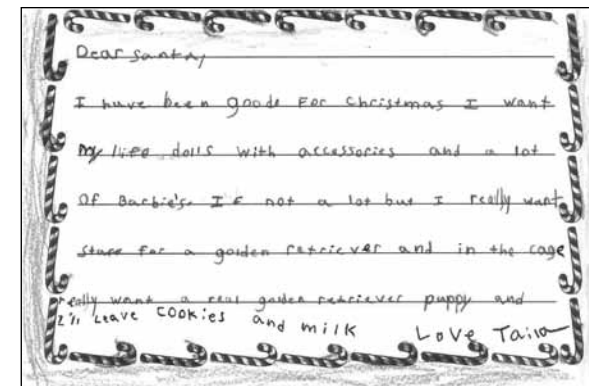 Dear Santa,
I have been goode For Christmas I want
My life dolls with accessories and a lot
OF Barbie's. IF not a lot but I really want
stuff for a golden retriever and in the cage
really want a real golden retriever puppy and
I'll Leave cookies and milk Love